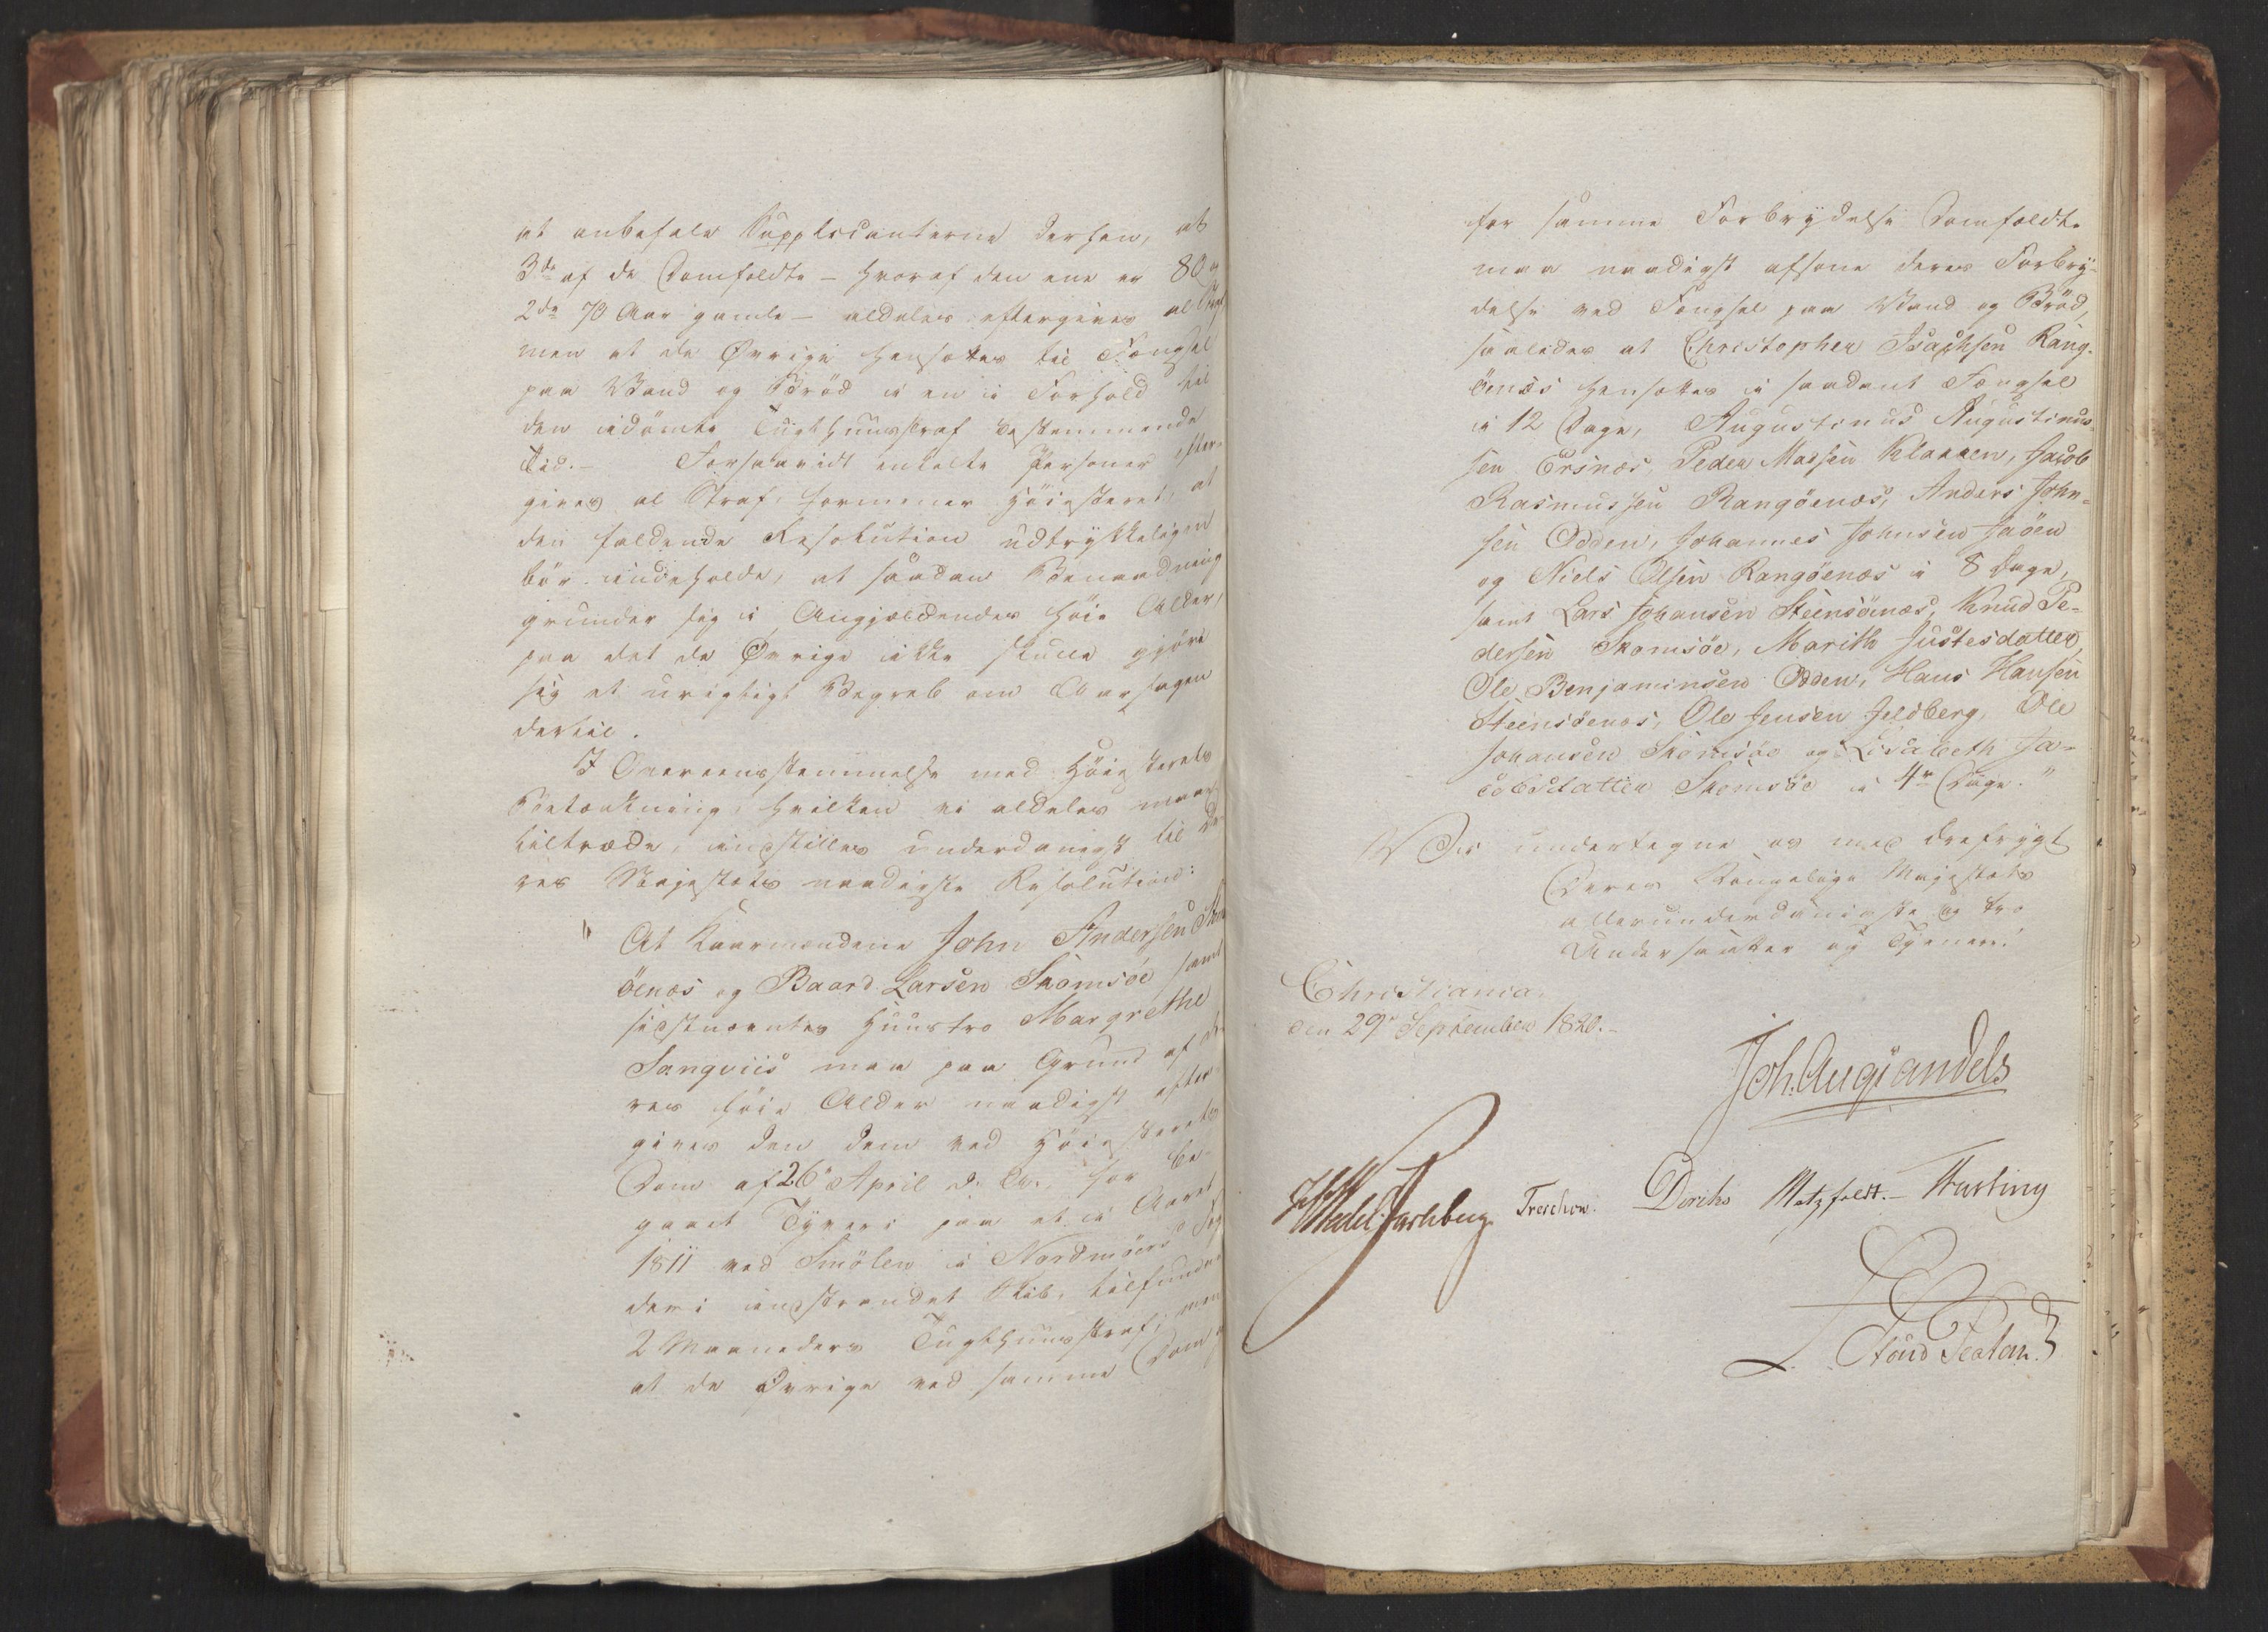 at anbefale Supplicanterne derhen, at
3de af de Domfældte – hvoraf den ene er 80 og
2de 70 Aar gamle – aldeles eftergives al Straf
men at de Øvrige hensættes til Fængsel
paa Vand og Brød i en i Forhold til
den idømte Tugthuusstraf bestemmende
Tid. – Forsaavidt enkelte Personer efter-
gives al Straf, formener Höiesteret, at
den faldende Resolution udtrykkeligen
bör indeholde, at saadan Benaadning
grunder sig i Angjældendes höie Alder,
paa det de Øvrige ikke skulle gjöre
sig et urigtigt Begreb om Aarsagen
dertil.
I Overeensstemmelse med Höiesterets
Betænkning, hvilken vi aldeles maae
tiltræde, indstilles underdanigst til De-
res Majestæts naadigste Resolution:
" At Kaarmændene John Andersen
öenæs og Baard Larsen Skomsöe samt
sidstnævntes Huustro Margrethe
Sanqviis maa paa Grund af De-
res höie Alder naadigst efter-
gives den dem ved Höiesterets
Dom af 26de April d. A., for be-
gaaet Tyveri paa et i Aaret
1811 ved Smölen i Nordmörs Fog-
deri indstrandet Skib, tilfundne
2 Maaneders Tugthuusstraf; men
at de Øvrige ved samme Dom
for samme Forbrydelse Domfældte
maa naadigst afsone deres Forbry-
delse ved Fængsel paa Vand og Bröd,
saaledes at Christopher Isachsen Rang-
öenæs hensættes i saadant Fængsel
i 12 Dage, Augustinus Augustinus-
sen Ersnæs, Peder Madsen Klakken, Jacob
Rasmussen Rangöenæs, Anders John-
sen Odden, Johannes Johnsen Jaöen
og Niels Olsen Rangöenæs i 8 Dage,
samt Lars Johansen Steensöenæs, Knud Pe-
dersen Skomsöe, Marith Justesdatter,
Ole Benjaminsen Odden, Hans Hansen
Steensöenæs, Ole Jensen Feldberg, Ole
Johansen Skomsöe og Lisabeth Ja-
cobsdatter Skomsöe i 4re Dage."
Vi undertegne os med Ærefrygt
Deres Kongelige Majestæts
allerunderdanigste og tro
Undersaatter og Tjenere!
Christiania
den 29de September 1820. –
Joh. Aug. Sandels
Wedel Jarlsberg Treschow. Diriks Motzfeldt. – Fasting